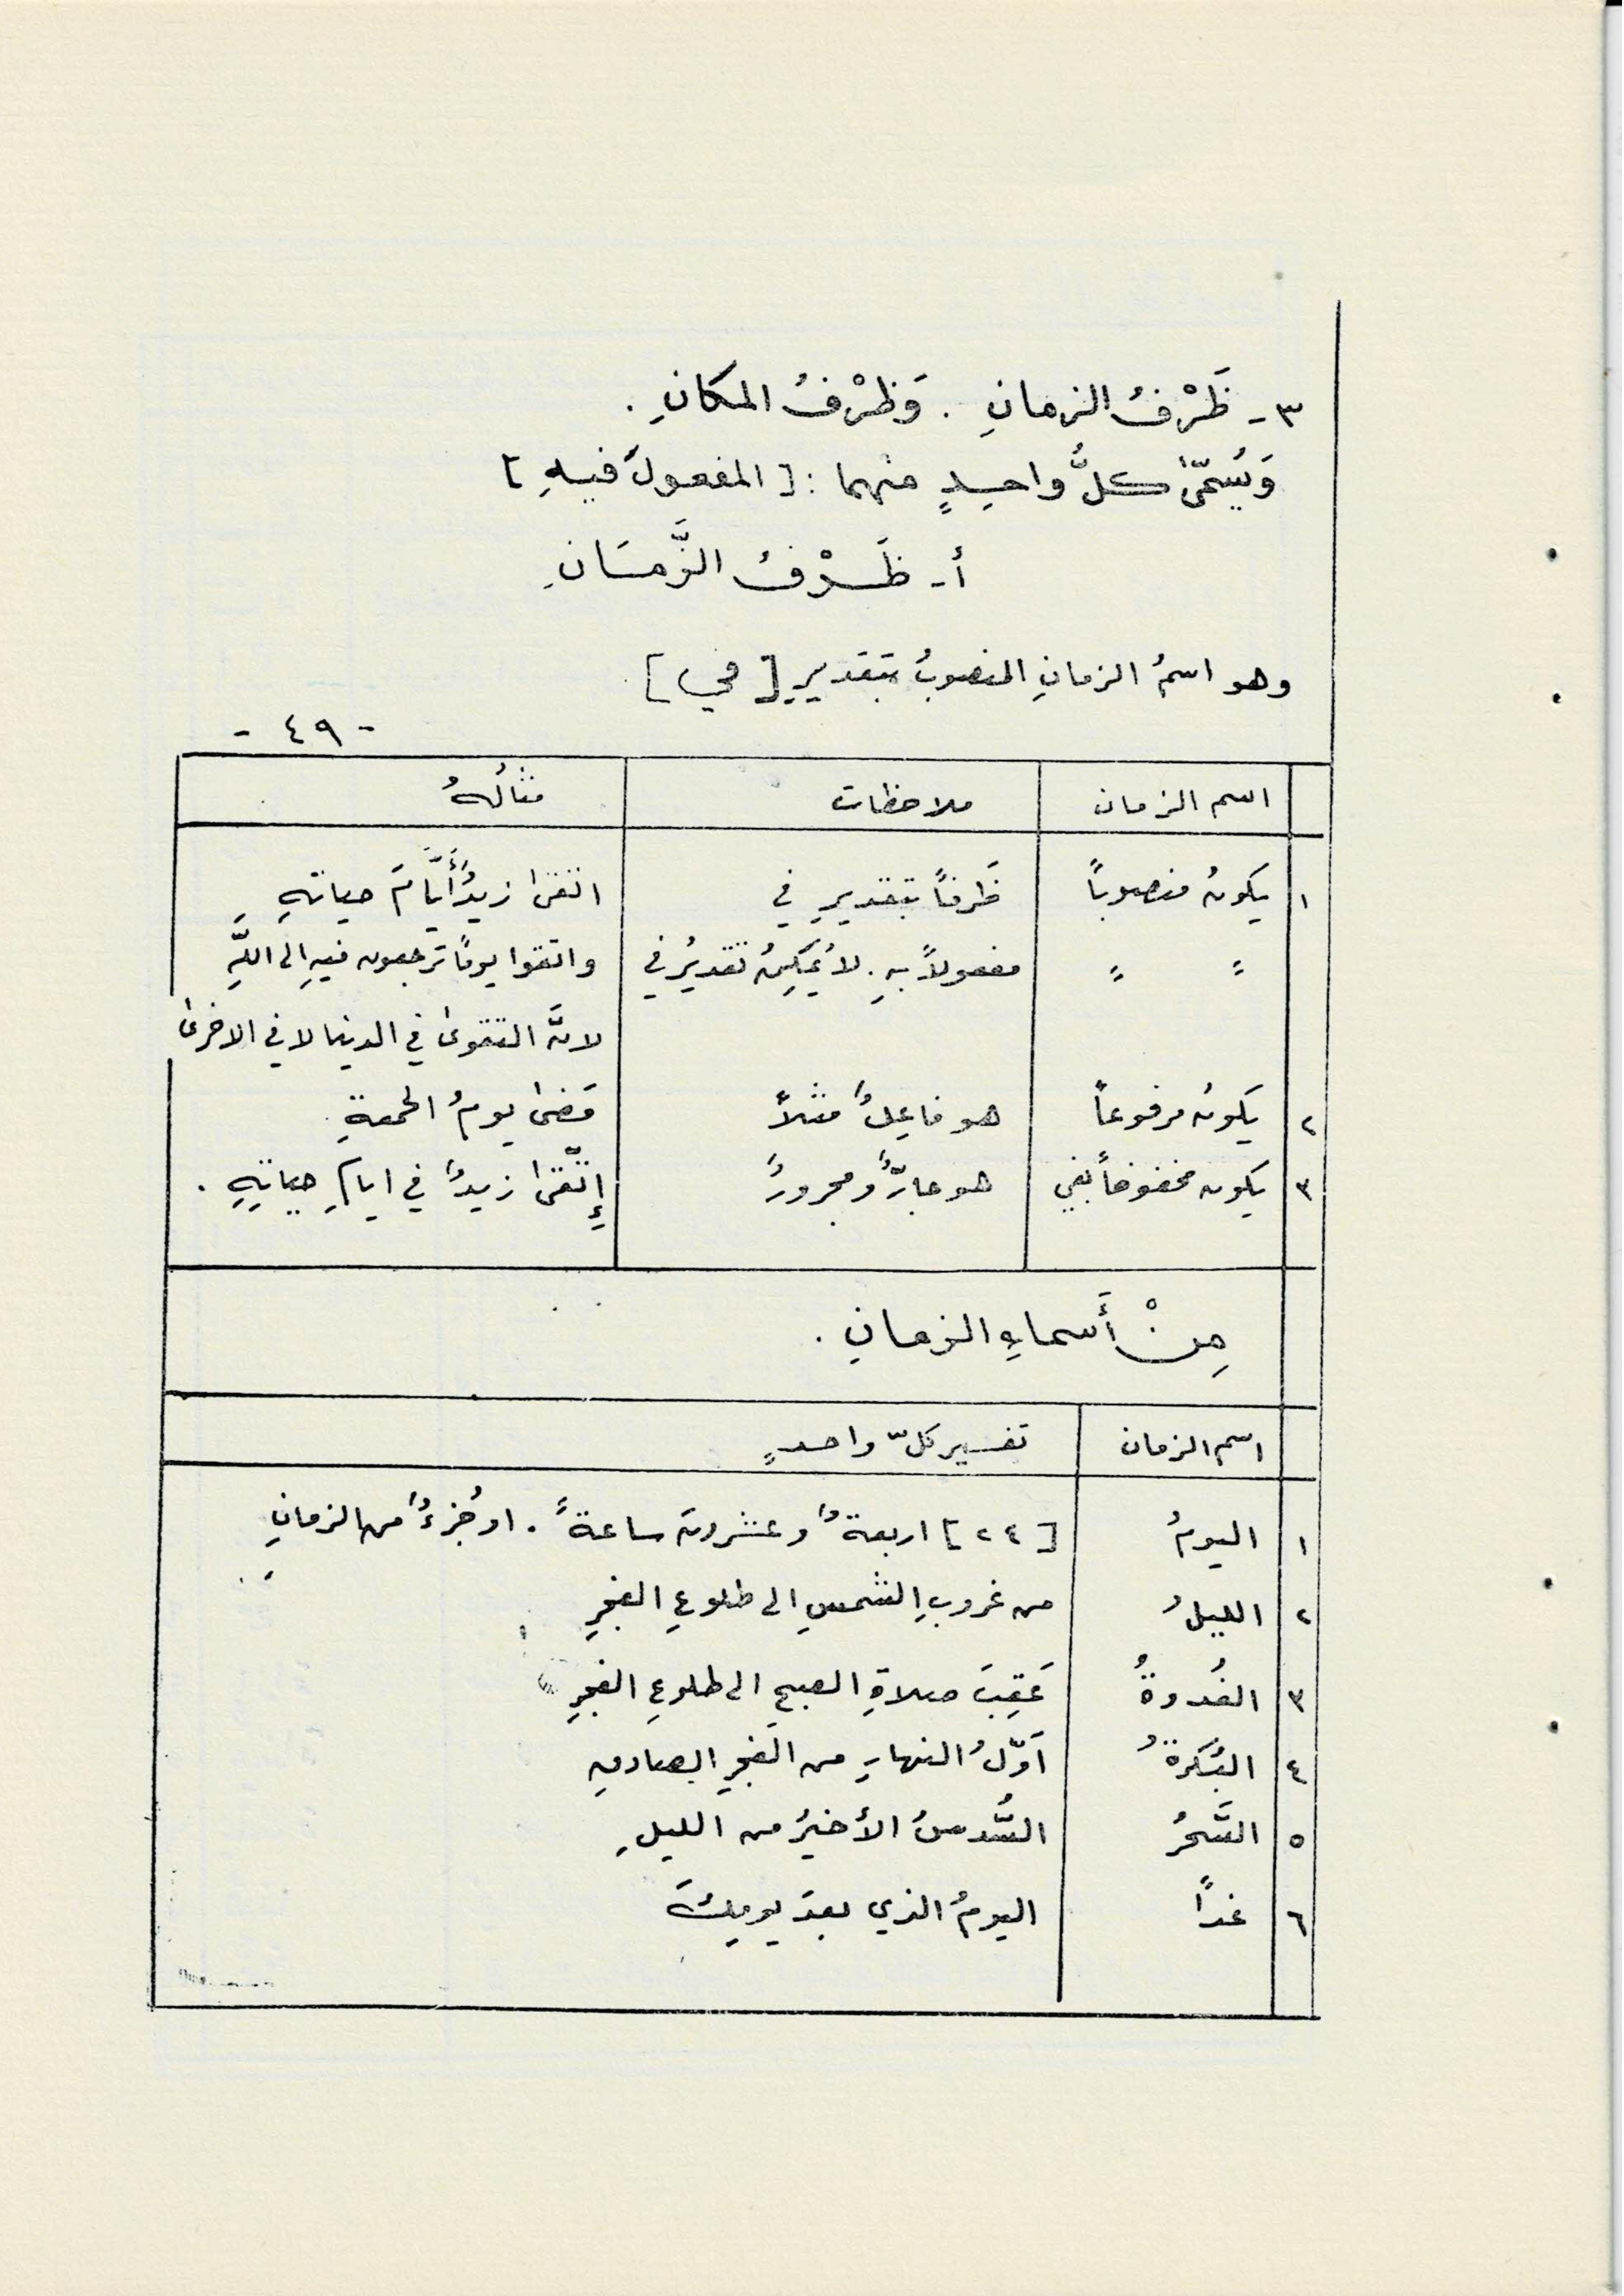 ٣- ظَرْفُ الزمانِ . وَظرْفُ المكانِ .
وَيُسمّىٰ كلُّ واحدٍ منهما : [ المفعولَ فيهِ ]
أ- ظَرْفُ الزَّمَانِ
وهو اسمُ الزمانِ المنصوبُ بتقديرِ [ في ]
- ٤٩ -
اسم الزمان | ملاحظات | مثالُهُ
١ | يكونُ منصوباً | ظرفاً بتقديرِ في | اتقىٰ زيدٌ أَيَّامَ حياتهِ
" " | مفعولاً بهِ . لا يُمكِنُ تقديرُ في | واتقوا يوماً ترجعون فيهِ إلى اللَّهِ
لانَّ التقوىٰ في الدنيا لا في الاخرىٰ
٢ | يكونُ مرفوعاً | هو فاعِلٌ مثلاً | مَضىٰ يومُ الجمعةِ .
٣ | يكون مخفوضاً بفي | هو جارٌّ ومجرورٌ | إتّقىٰ زيدٌ في ايامِ حياتِهِ .
مِنْ أَسماءِ الزمانِ .
اسم الزمان | تفسير كلّ واحدٍ
١ | اليومُ | [ ٢٤ ] اربعةٌ وعشرونَ ساعةً . او جُزءٌ من الزمانِ
٢ | الليلُ | من غروبِ الشمسِ الى طلوعِ الفجرِ
٣ | الغُدوةُ | عَقِبَ صلاةِ الصبحِ الى طلوعِ الفجرِ
٤ | البُكرةُ | اَوّلُ النهارِ من الفجرِ الصادقِ
٥ | السَّحرُ | السُّدسُ الأخيرُ من الليلِ
٦ | غداً | اليومُ الذي بعدَ يومِكَ